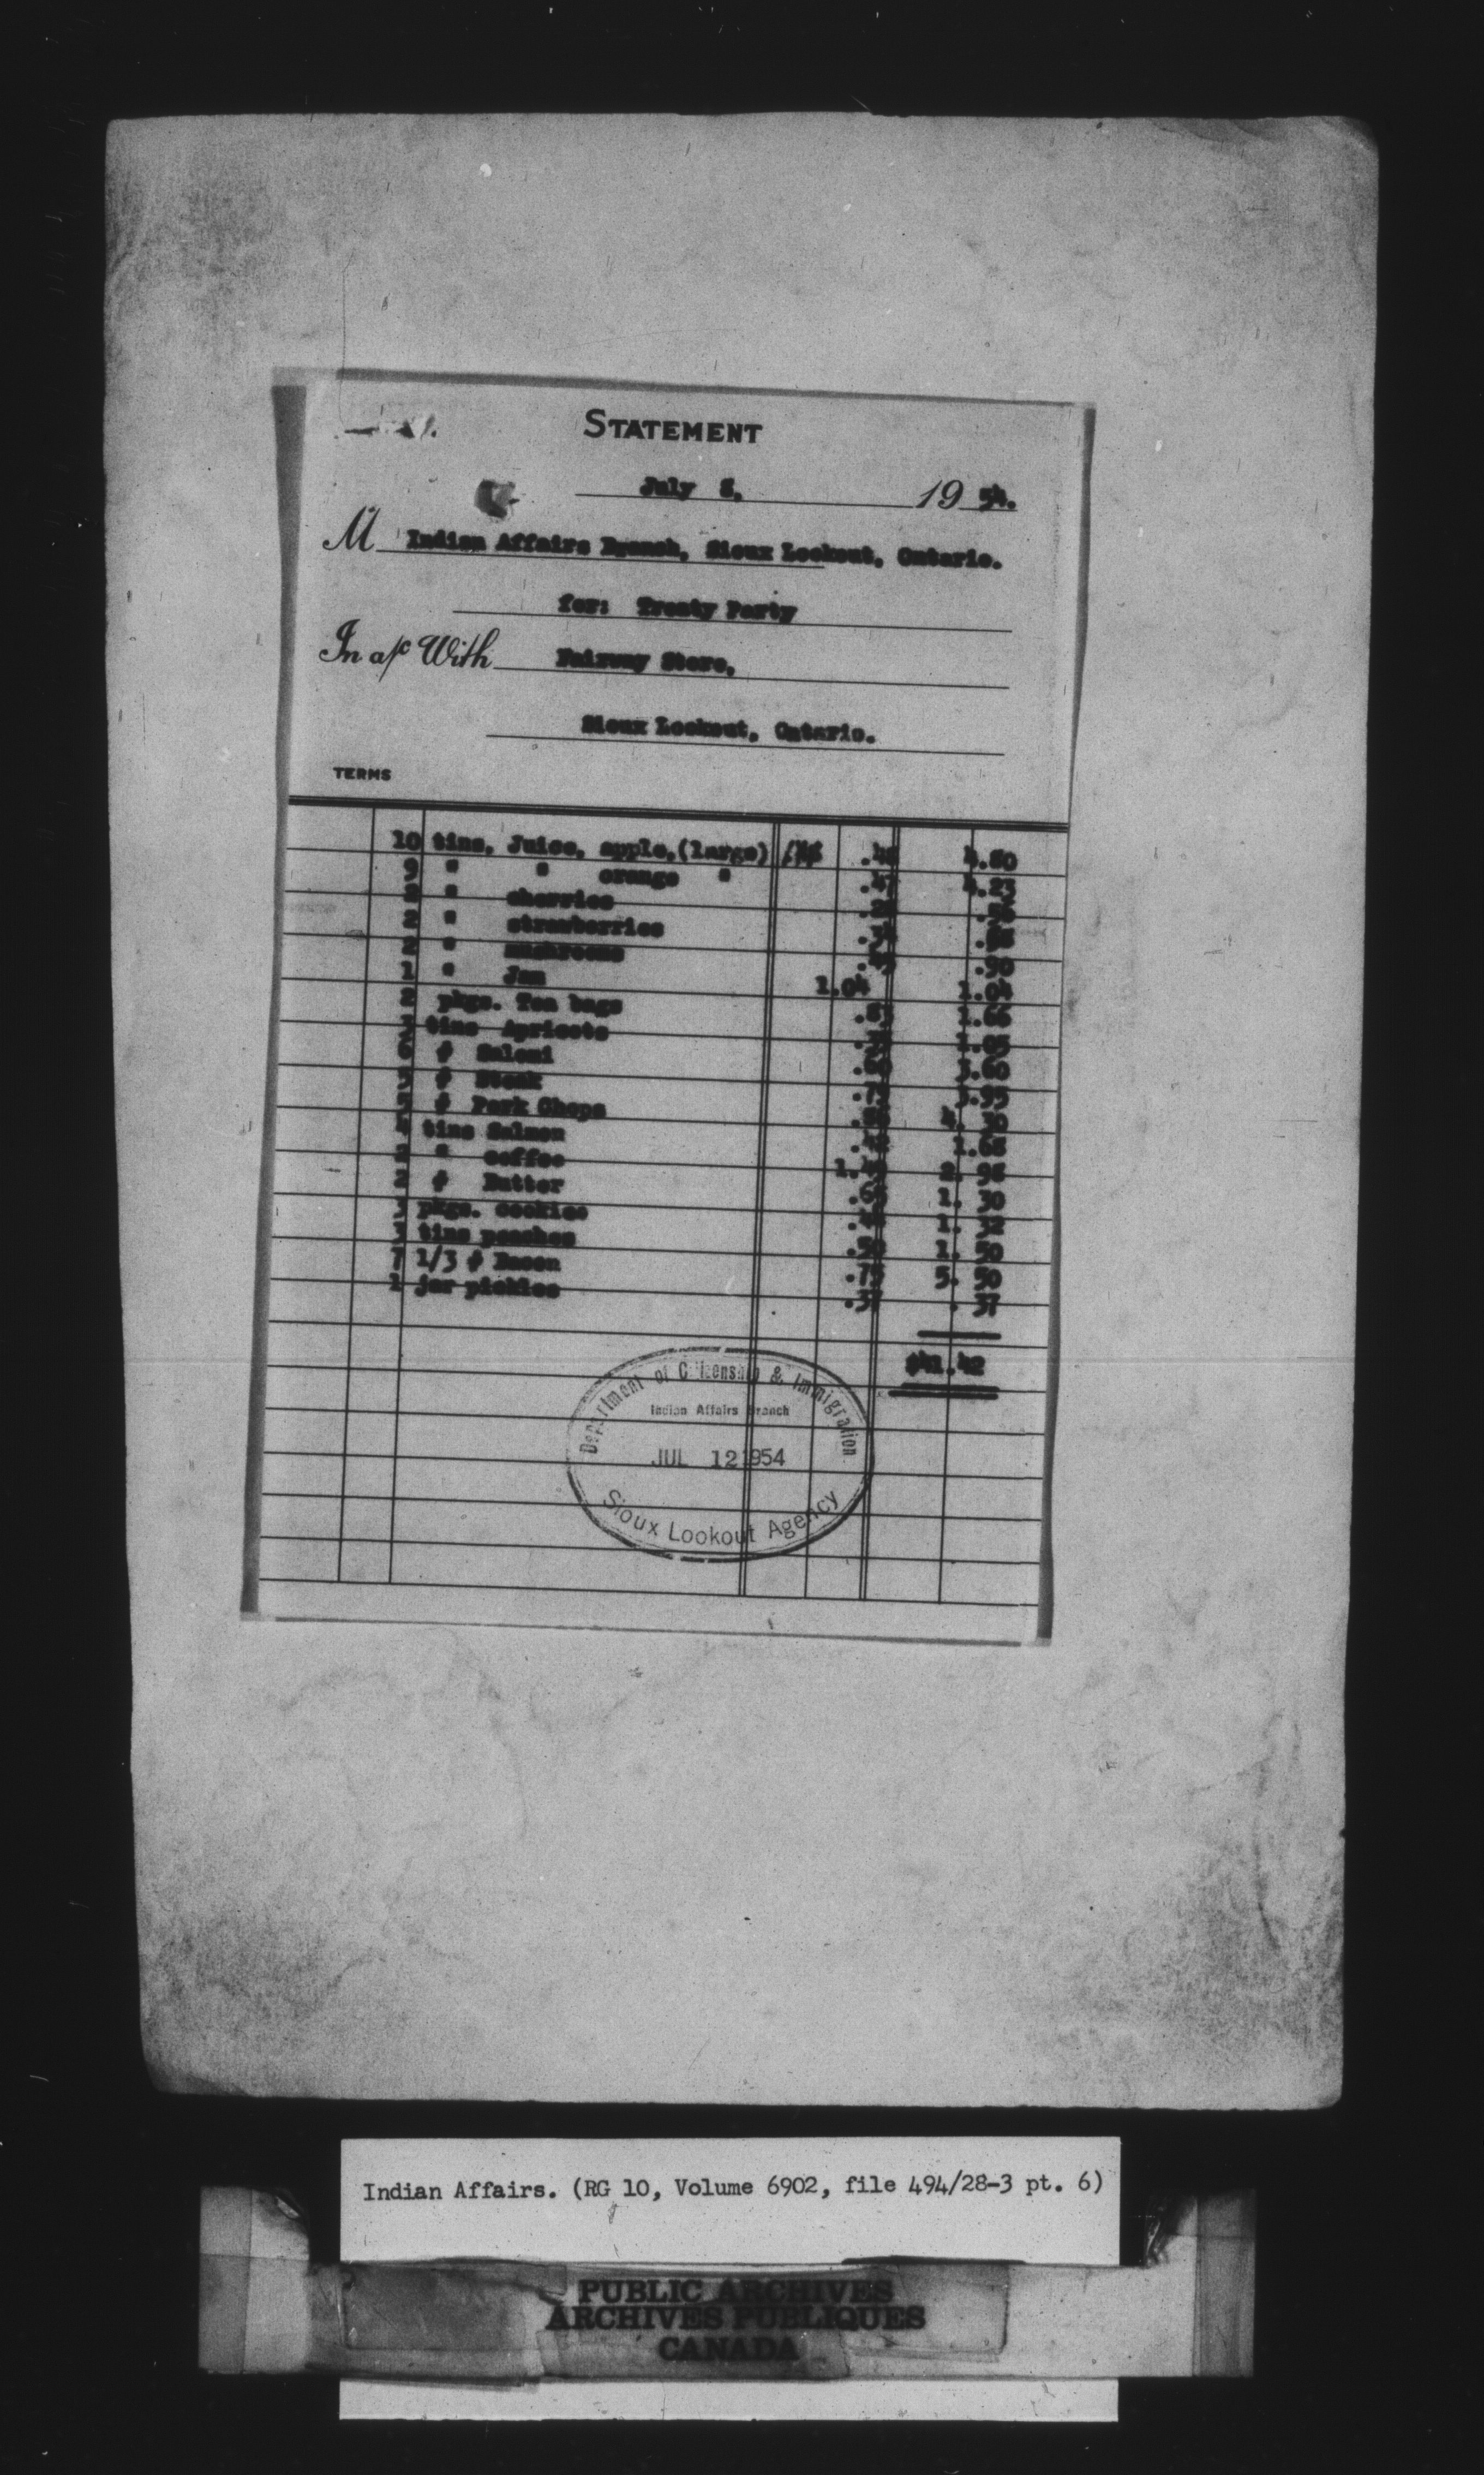 STATEMENT
July 8, 19 54.
M Indian Affairs Branch, Sioux Lookout, Ontario.
for: Treaty Party
In a/c With Fairway Store,
Sioux Lookout, Ontario.
TERMS
10 tins, Juice, apple,(large) .48 4.80
9 " " orange " .47 4.23
2 " cherries .28 .56
2 " strawberries
2 " mushrooms .45 .90
1 " Jam 1.04 1.04
2 pkgs. Tea bags .83 1.66
3 tins Apricots .35 1.05
6 # Salomi .60 3.60
5 # Steak .79 3.95
5 # Pork Chops .86 4. 30
4 tins Salmon .42 1.68
2 " coffee 1.49 2. 98
2 # Butter .65 1. 30
3 pkgs. cookies .44 1. 32
3 tins peaches .50 1. 50
7 1/3 # Bacon .75 5. 50
1 jar pickles .37 . 37
$41.42
Department of Citizenship & Immigration
Indian Affairs Branch
JUL 12 1954
Sioux Lookout Agency
Indian Affairs. (RG 10, Volume 6902, file 494/28-3 pt. 6)
PUBLIC ARCHIVES
ARCHIVES PUBLIQUES
CANADA